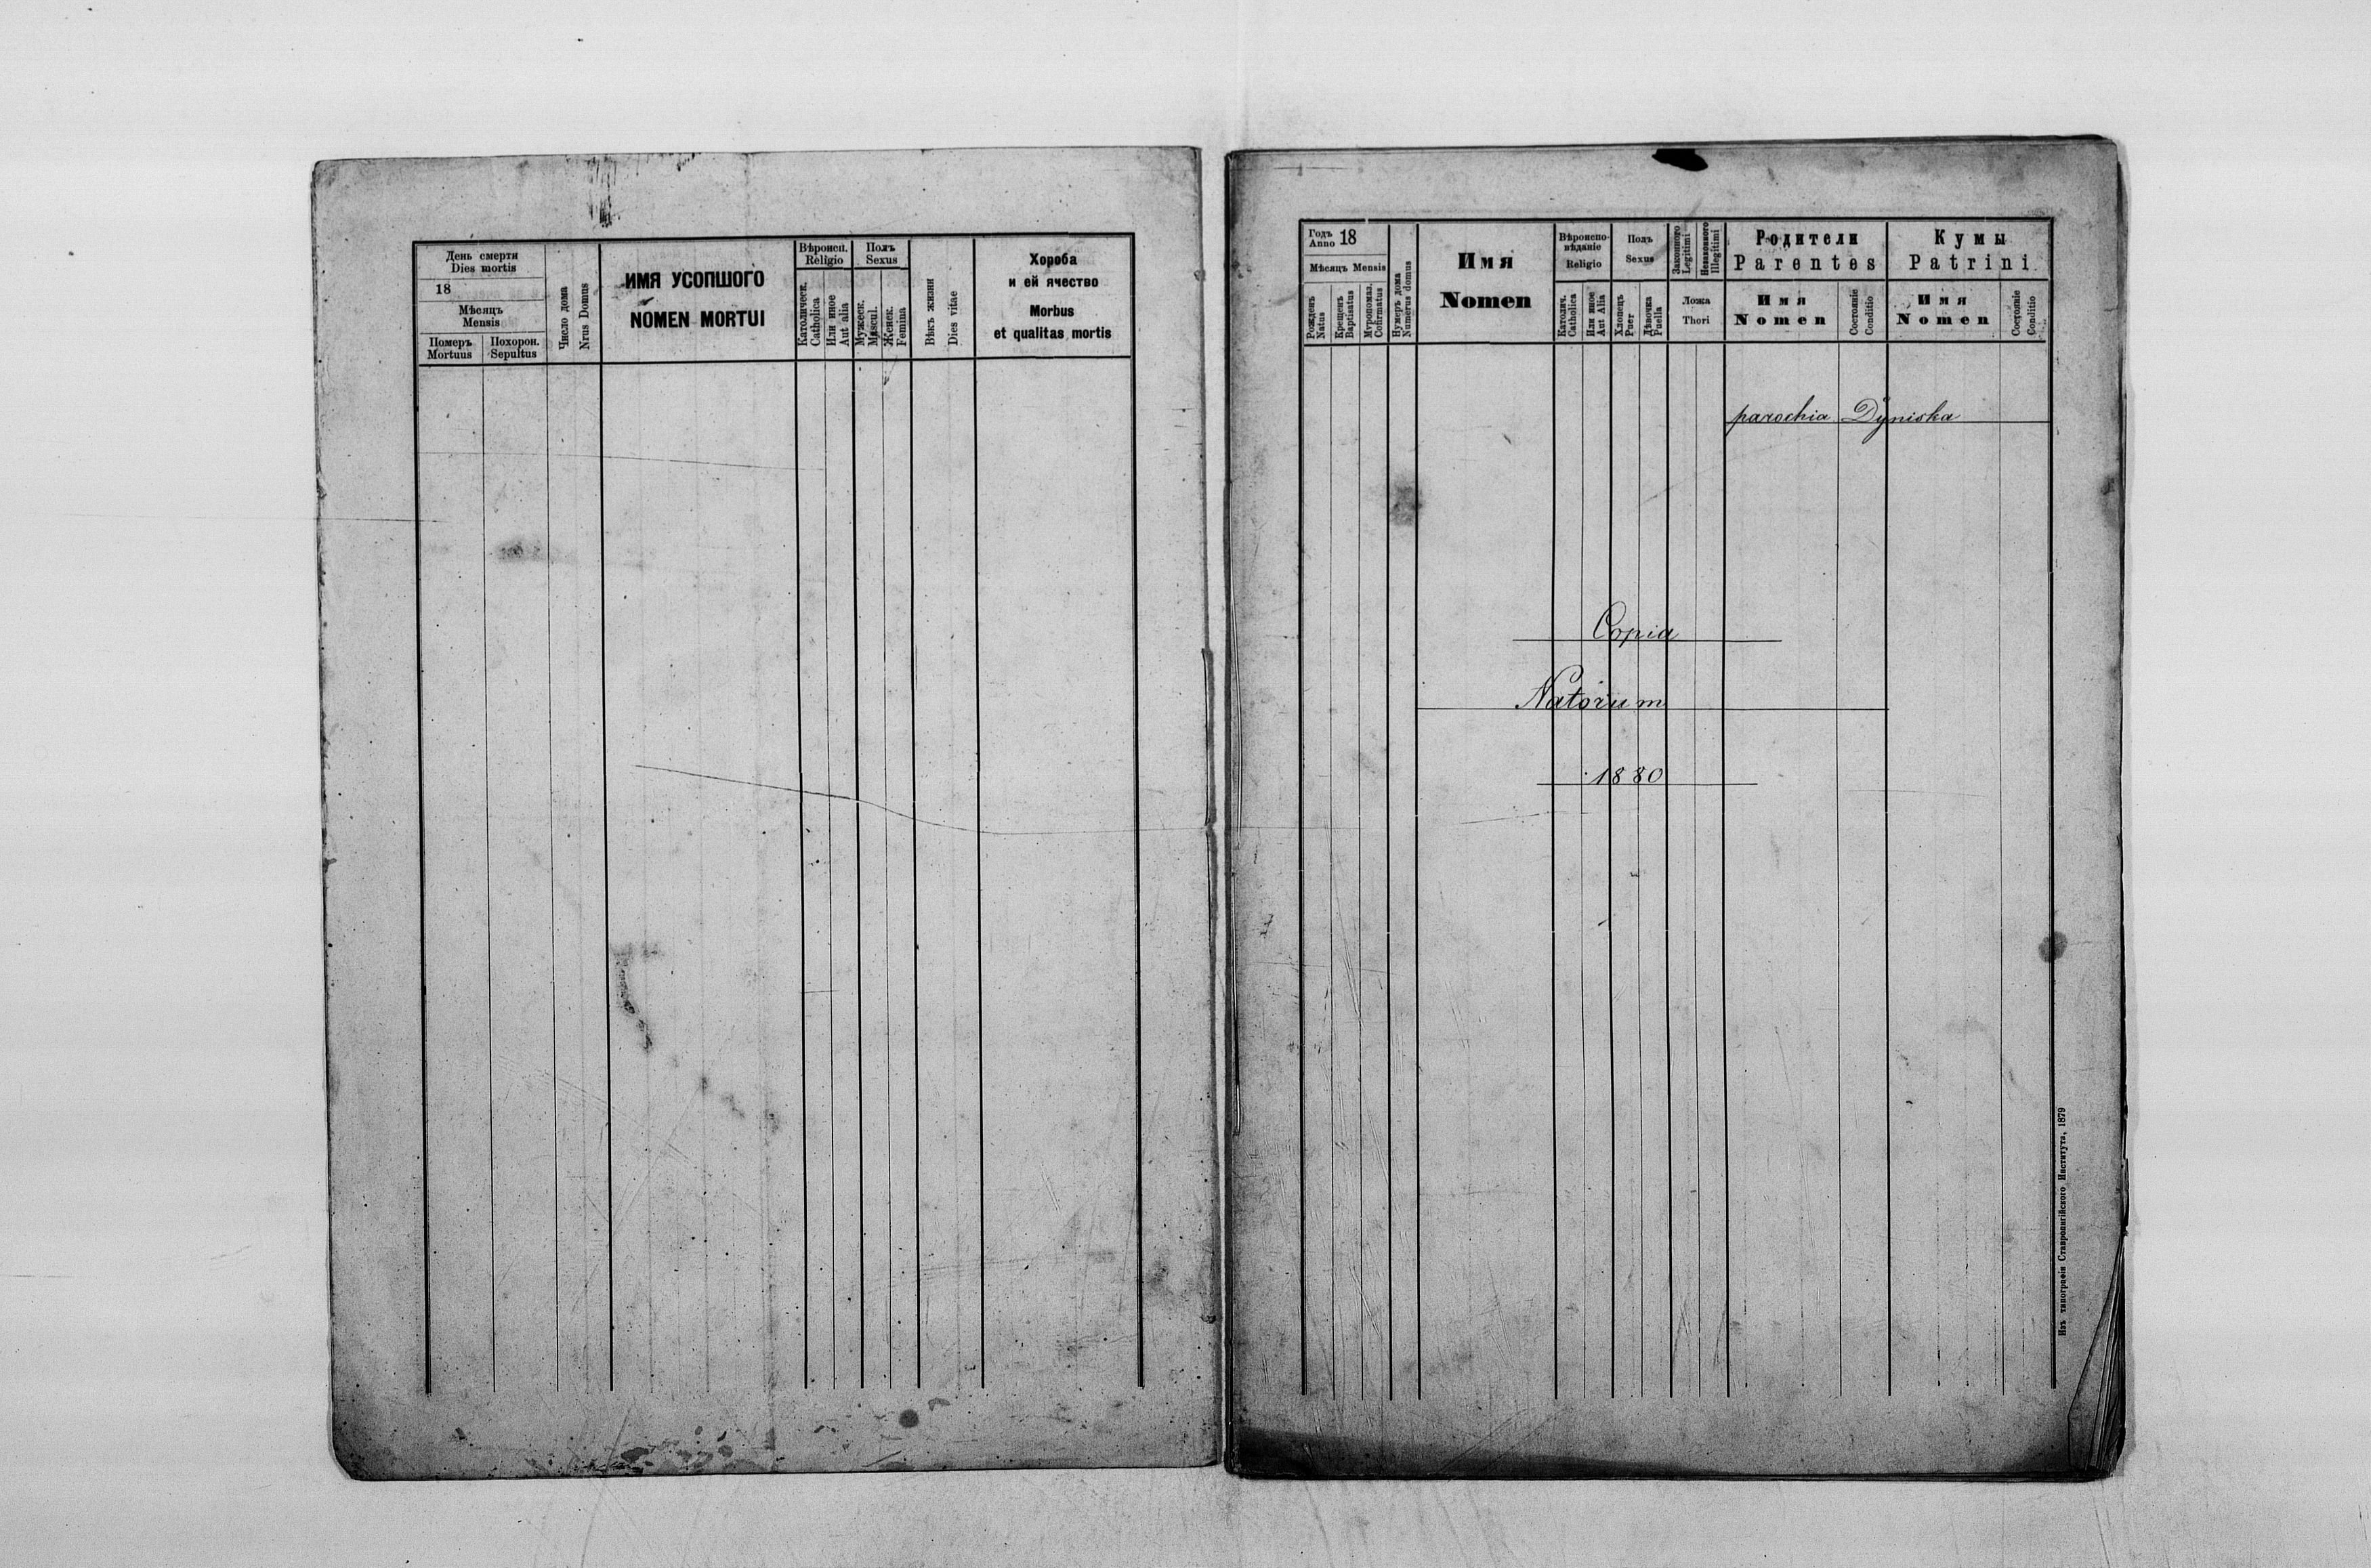 День смерти
Dies mortis
18
Мѣсяцъ
Mensis
Померъ
Mortuus
Похорон.
Sepultus
Число дома
Nrus Domus
ИМЯ УСОПШОГО
NOMEN MORTUI
Вѣроисп.
Religio
Католическ.
Catholica
Или иное
Aut alia
Полъ
Sexus
Мужеск.
Mascul.
Женск.
Femina
Вѣкъ жизни
Dies vitae
Хороба
и ей ячество
Morbus
et qualitas mortis
Годъ
Anno 18
Мѣсяцъ Mensis
Рожденъ
Natus
Крещенъ
Baptisatus
Мѵропомаз.
Cofirmatus
Нумеръ дома
Numerus domus
Имя
Nomen
Вѣроиспо-
вѣданіе
Religio
Католич.
Catholica
Или иное
Aut Alia
Полъ
Sexus
Хлопецъ
Puer
Дѣвочка
Puella
Законного
Legitimi
Незаконного
Illegitimi
Ложа
Thori
Родители
Parentes
Имя
Nomen
Состояніе
Conditio
Кумы
Patrini
Имя
Nomen
Состояніе
Conditio
parochia Dyniska
Copia
Natorum
1880
Изъ типографіи Ставропигійского Института, 1879